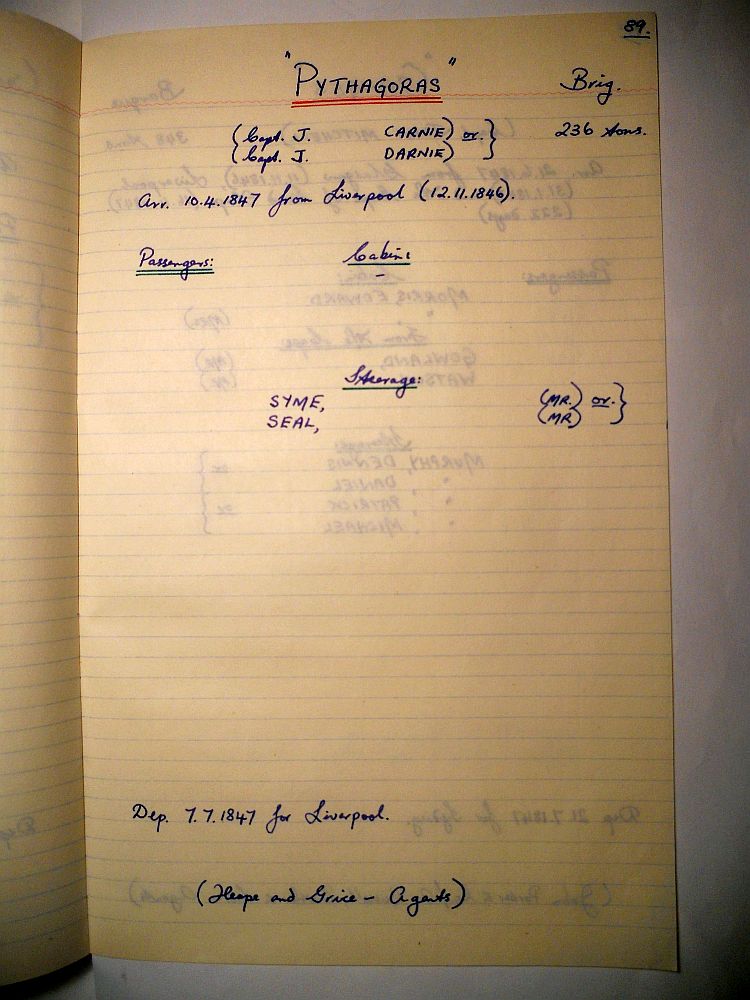 89.
"PYTHAGORAS" Brig.
(Capt. J. CARNIE) or } 236 tons.
(Capt. J. DARNIE)
Arr. 10.4.1847 from Liverpool (12.11.1846).
Passengers: Cabin:
-
Steerage:
SYME, (MR.) or. }
SEAL, (MR)
Dep. 7.7.1847 for Liverpool.
(Heape and Grice - Agents)